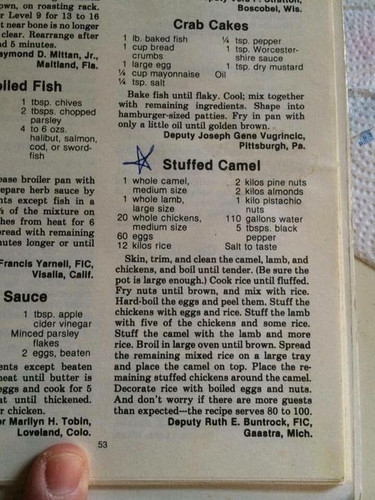 own, on roasting rack.
r Level 9 for 13 to 16
t near bone is no longer
clear. Rearrange after
d 5 minutes.
ymond D. Mittan, Jr.,
Maitland, Fla.
oiled Fish
1 tbsp. chives
2 tbsps. chopped
parsley
4 to 6 ozs.
halibut, salmon,
cod, or sword-
fish
ease broiler pan with
epare herb sauce by
nts except fish in a
½ of the mixture on
hes from heat for 6
pread with remaining
nutes longer or until
Francis Yarnell, FIC,
Visalia, Calif.
Sauce
1 tbsp. apple
cider vinegar
Minced parsley
flakes
2 eggs, beaten
ents except beaten
heat until butter is
eggs and cook for 5
at until thickened.
r chicken.
r Marilyn H. Tobin,
Loveland, Colo.
Boscobel, Wis.
Crab Cakes
1 lb. baked fish
1 cup bread
crumbs
1 large egg
¼ cup mayonnaise
¼ tsp. salt
¼ tsp. pepper
1 tsp. Worcester-
shire sauce
1 tsp. dry mustard
Oil
Bake fish until flaky. Cool; mix together
with remaining ingredients. Shape into
hamburger-sized patties. Fry in pan with
only a little oil until golden brown.
Deputy Joseph Gene Vugrincic,
Pittsburgh, Pa.
Stuffed Camel
1 whole camel,
medium size
1 whole lamb,
large size
20 whole chickens,
medium size
60 eggs
12 kilos rice
2 kilos pine nuts
2 kilos almonds
1 kilo pistachio
nuts
110 gallons water
5 tbsps. black
pepper
Salt to taste
Skin, trim, and clean the camel, lamb, and
chickens, and boil until tender. (Be sure the
pot is large enough.) Cook rice until fluffed.
Fry nuts until brown, and mix with rice.
Hard-boil the eggs and peel them. Stuff the
chickens with eggs and rice. Stuff the lamb
with five of the chickens and some rice.
Stuff the camel with the lamb and more
rice. Broil in large oven until brown. Spread
the remaining mixed rice on a large tray
and place the camel on top. Place the re-
maining stuffed chickens around the camel.
Decorate rice with boiled eggs and nuts.
And don't worry if there are more guests
than expected—the recipe serves 80 to 100.
Deputy Ruth E. Buntrock, FIC,
Gaastra, Mich.
53